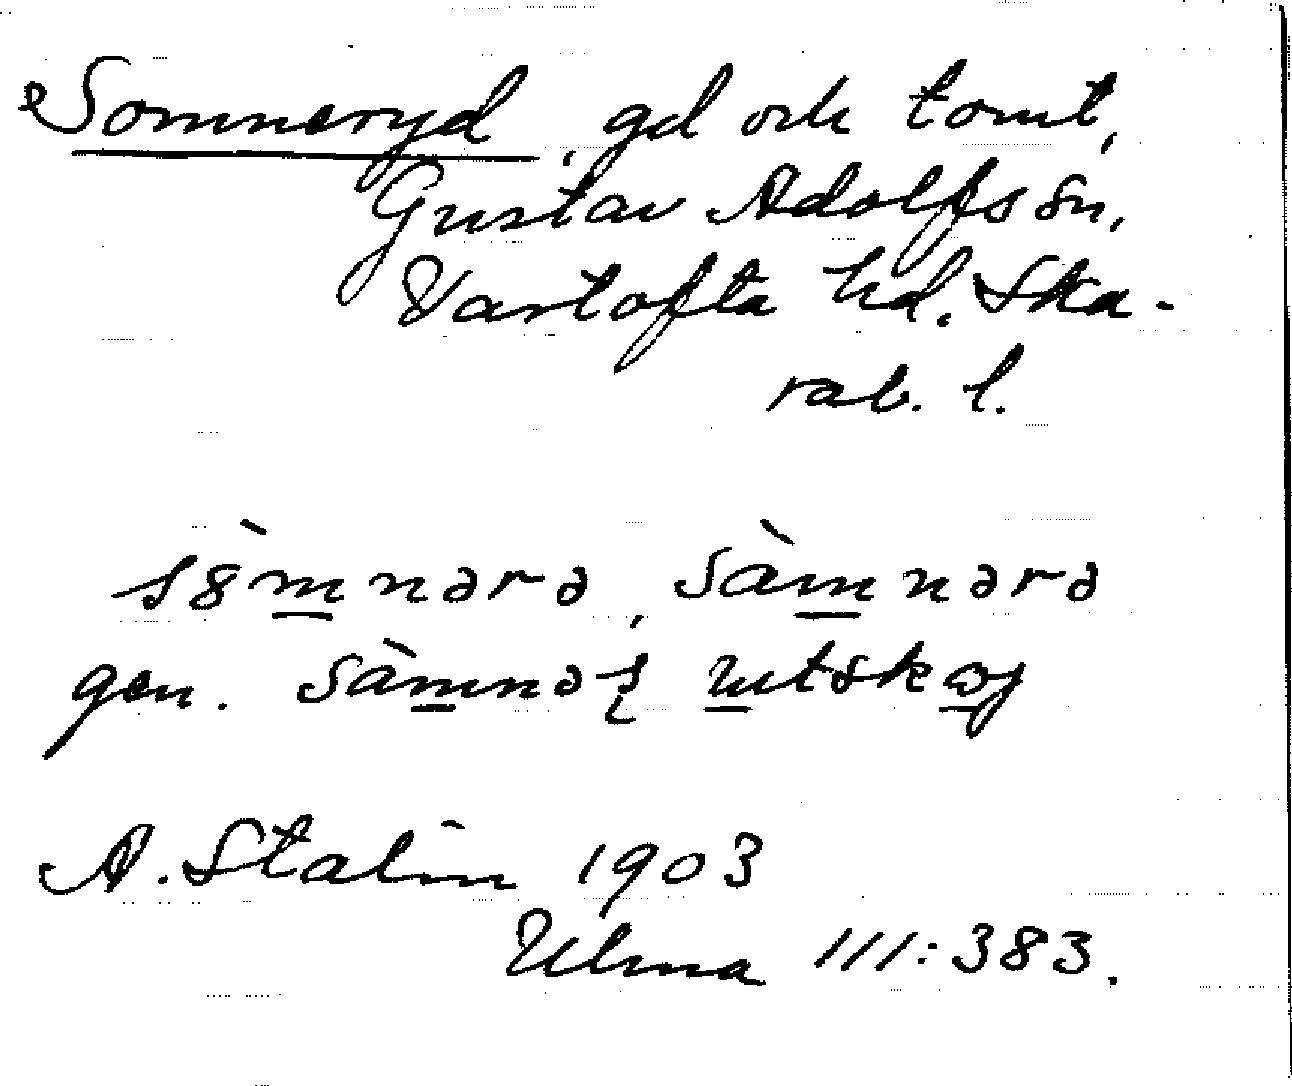 Somneryd, gd och tomt,
Gustav Adolfs sn,
Vartofta hd. Ska-
rab. l.
s8̀mnərə, sàmnərə
gen. sàmnəş utskaj
A. Stalin 1903
Ulma 111:383.